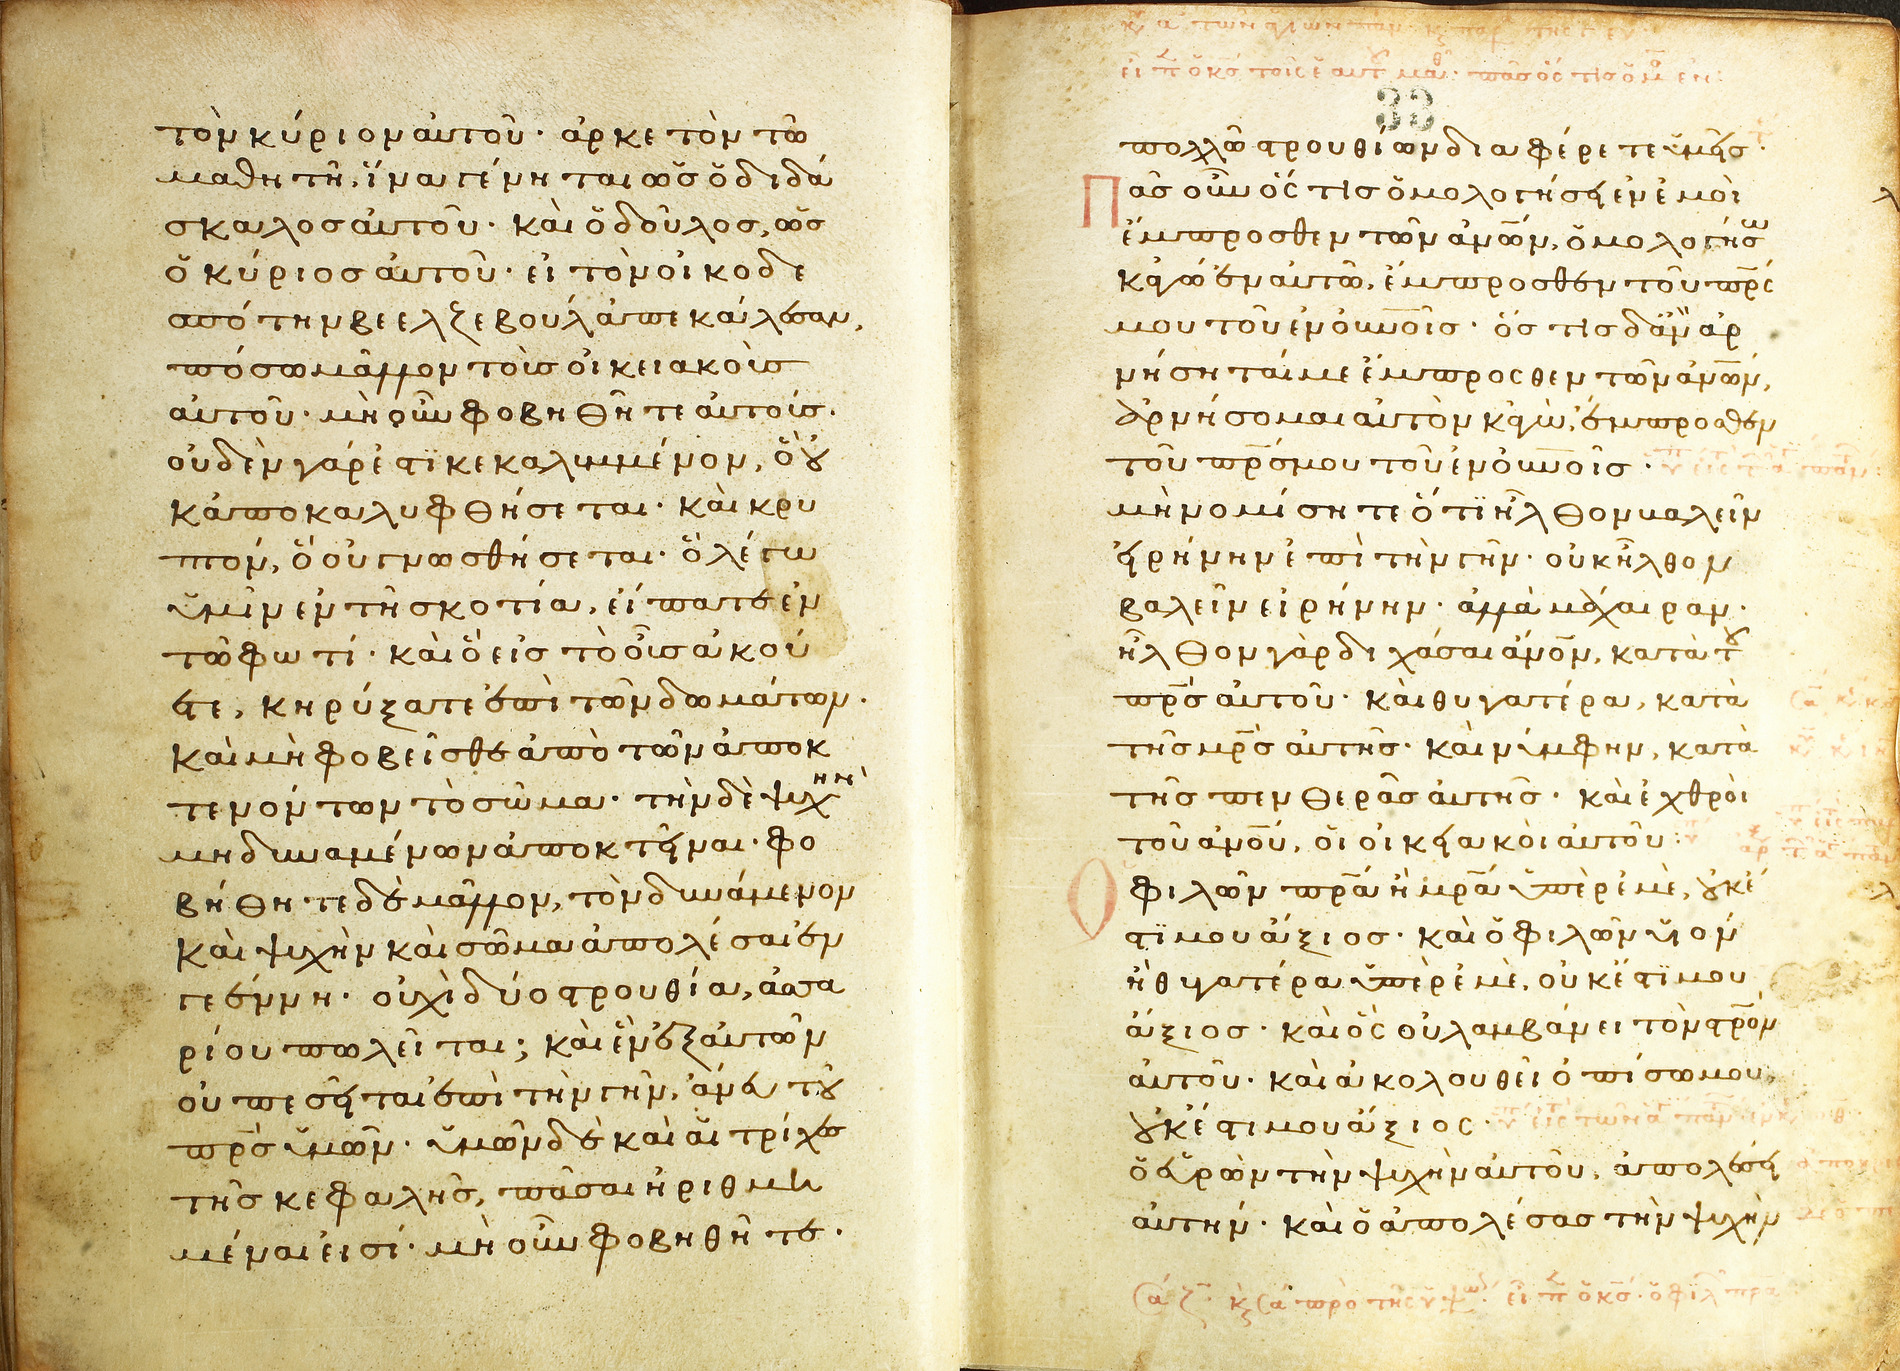 τὸν κύριον αὐτοῦ· ἀρκετὸν τῶ
μαθητῆ, ἵνα γένηται ὡς ὁ διδά
σκαλος αὐτοῦ· καὶ ὁ δοῦλος, ὡς
ὁ κύριος αὐτοῦ· εἰ τὸν οἰκοδε
σπότην βεελζεβοὺλ ἀπεκάλεσαν,
πόσω μᾶλλον τοὺς οἰκειακοὺς
αὐτοῦ· μὴ οὖν φοβηθῆτε αὐτούς·
οὐδὲν γάρ ἐστι κεκαλυμμένον, ὃ οὐ
κ ἀποκαλυφθήσεται· καὶ κρυ
πτόν, ὃ οὐ γνωσθήσεται· ὃ λέγω
ὑμῖν ἐν τῆ σκοτία, εἴπατε ἐν
τῶ φωτί· καὶ ὃ εἰς τὸ οὖς ἀκού
ετε, κηρύξατε ἐπὶ τῶν δωμάτων·
καὶ μὴ φοβεῖσθε ἀπὸ τῶν ἀποκ
τενόντων τὸ σῶμα· τὴν δὲ ψυχὴν
μὴ δυναμένων ἀποκτεῖναι· φο
βήθητε δὲ μᾶλλον, τὸν δυνάμενον
καὶ ψυχὴν καὶ σῶμα ἀπολέσαι ἐν
γεέννη· οὐχὶ δύο στρουθία, ἀσσα
ρίου πωλεῖται; καὶ ἓν ἐξ αὐτῶν
οὐ πεσεῖται ἐπὶ τὴν γῆν, ἄνευ τοῦ
πρς ὑμῶν· ὑμῶν δὲ καὶ αἱ τρίχες
τῆς κεφαλῆς, πᾶσαι ἠριθμη
μέναι εἰσί· μὴ οὖν φοβηθῆτε·
33
πολλῶ στρουθίων διαφέρετε ὑμεῖς·
Πᾶς οὖν ὅς τις ὁμολογήσει ἐν ἐμοὶ
ἔμπροσθεν τῶν ἀνων, ὁμολογήσω
κἀγὼ ἐν αὐτῶ, ἔμπροσθεν τοῦ πρς
μου τοῦ ἐν οὐνοῖς· ὅς τις δ' ἂν ἀρ
νήσηταί με ἔμπροσθεν τῶν ἀνων,
ἀρνήσομαι αὐτὸν κἀγὼ, ἔμπροσθεν
τοῦ πρς μου τοῦ ἐν οὐνοῖς·
μὴ νομίσητε ὅτι ἦλθον βαλεῖν
εἰρήνην ἐπὶ τὴν γῆν· οὐκ ἦλθον
βαλεῖν εἰρήνην· ἀλλὰ μάχαιραν·
ἦλθον γὰρ διχάσαι ἄνον, κατὰ τοῦ
πρς αὐτοῦ· καὶ θυγατέρα, κατὰ
τῆς μρς αὐτῆς· καὶ νύμφην, κατὰ
τῆς πενθερᾶς αὐτῆς· καὶ ἐχθροὶ
τοῦ ἀνου, οἱ οἰκειακοὶ αὐτοῦ:
Ὁ φιλῶν πρα ἢ μρα ὑπὲρ ἐμὲ, οὐκ ἔ
στι μου ἄξιος· καὶ ὁ φιλῶν υἱὸν
ἢ θυγατέρα ὑπὲρ ἐμὲ, οὐκ ἔστι μου
ἄξιος· καὶ ὃς οὐ λαμβάνει τὸν στρον
αὐτοῦ· καὶ ἀκολουθεῖ ὀπίσω μου,
οὐκ ἔστι μου ἄξιος·
ὁ εὑρὼν τὴν ψυχὴν αὐτοῦ, ἀπολέσει
αὐτήν· καὶ ὁ ἀπολέσας τὴν ψυχὴν